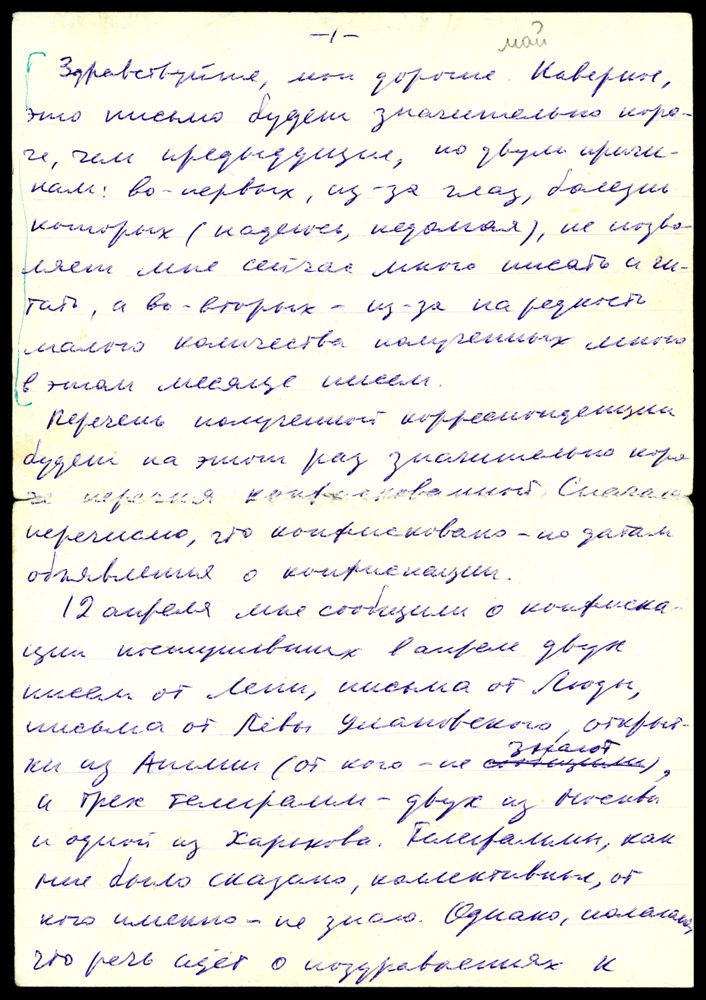 -1-
май
Здравствуйте, мои дорогие. Наверное,
это письмо будет значительно коро-
че, чем предыдущие, по двум причи-
нам: во-первых, из-за глаз, болезнь
которых (надеюсь, недолгая), не позво-
ляет мне сейчас много писать и чи-
тать, а во-вторых - из-за на редкость
малого количества полученных мною
в этом месяце писем.
Перечень полученной корреспонденции
будет на этот раз значительно коро-
че перечня конфискованной. Сначала
перечислю, что конфисковано - по датам
объявления о конфискации.
12 апреля мне сообщили о конфиска-
ции поступивших в апреле двух
писем от Лени, письма от Люды,
письма от Левы Улановского, открыт-
ки из Англии (от кого - не сообщили знают),
и трех телеграмм - двух из Москвы
и одной из Харькова. Телеграммы, как
мне было сказано, коллективные, от
кого именно - не знаю. Однако, полагаю,
что речь идёт о поздравлениях к